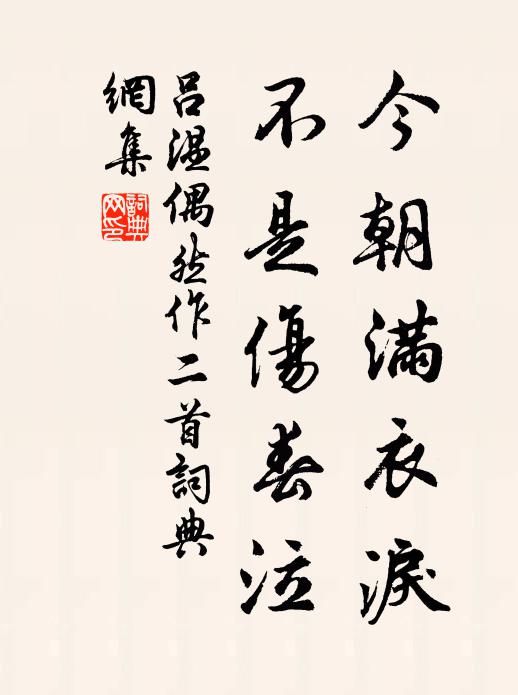 今朝滿衣淚
不是傷春泣
呂溫偶然作二首詞典
網集
詞典
网印